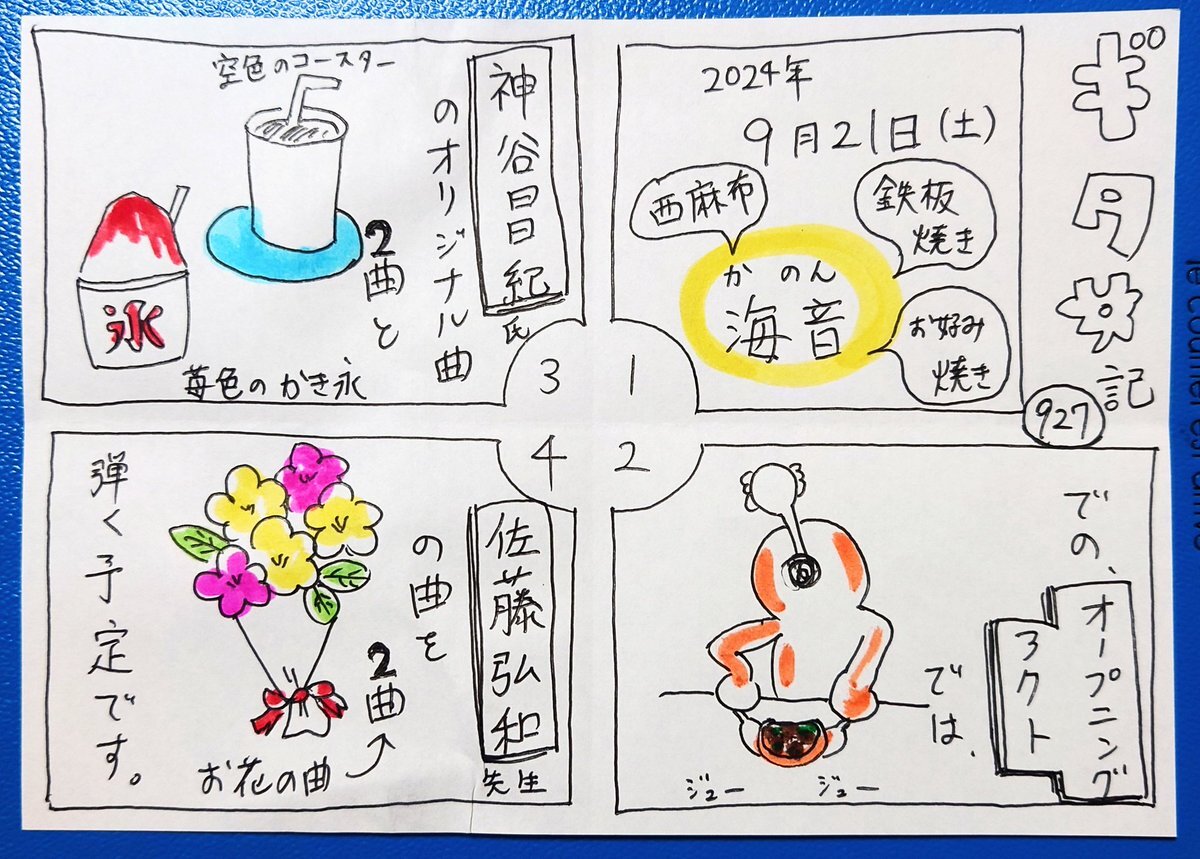 ギタ
記
927
1
2024年
9月21日(土)
西麻布
鉄板
焼き
かのん
海音
お好み
焼き
2
での、
オープニング
アクト
では、
ジュー
ジュー
3
神谷昌紀
氏
のオリジナル曲
2曲と
空色のコースター
氷
苺色のかき氷
4
佐藤弘和
先生
の曲を
2曲
お花の曲
弾く予定です。